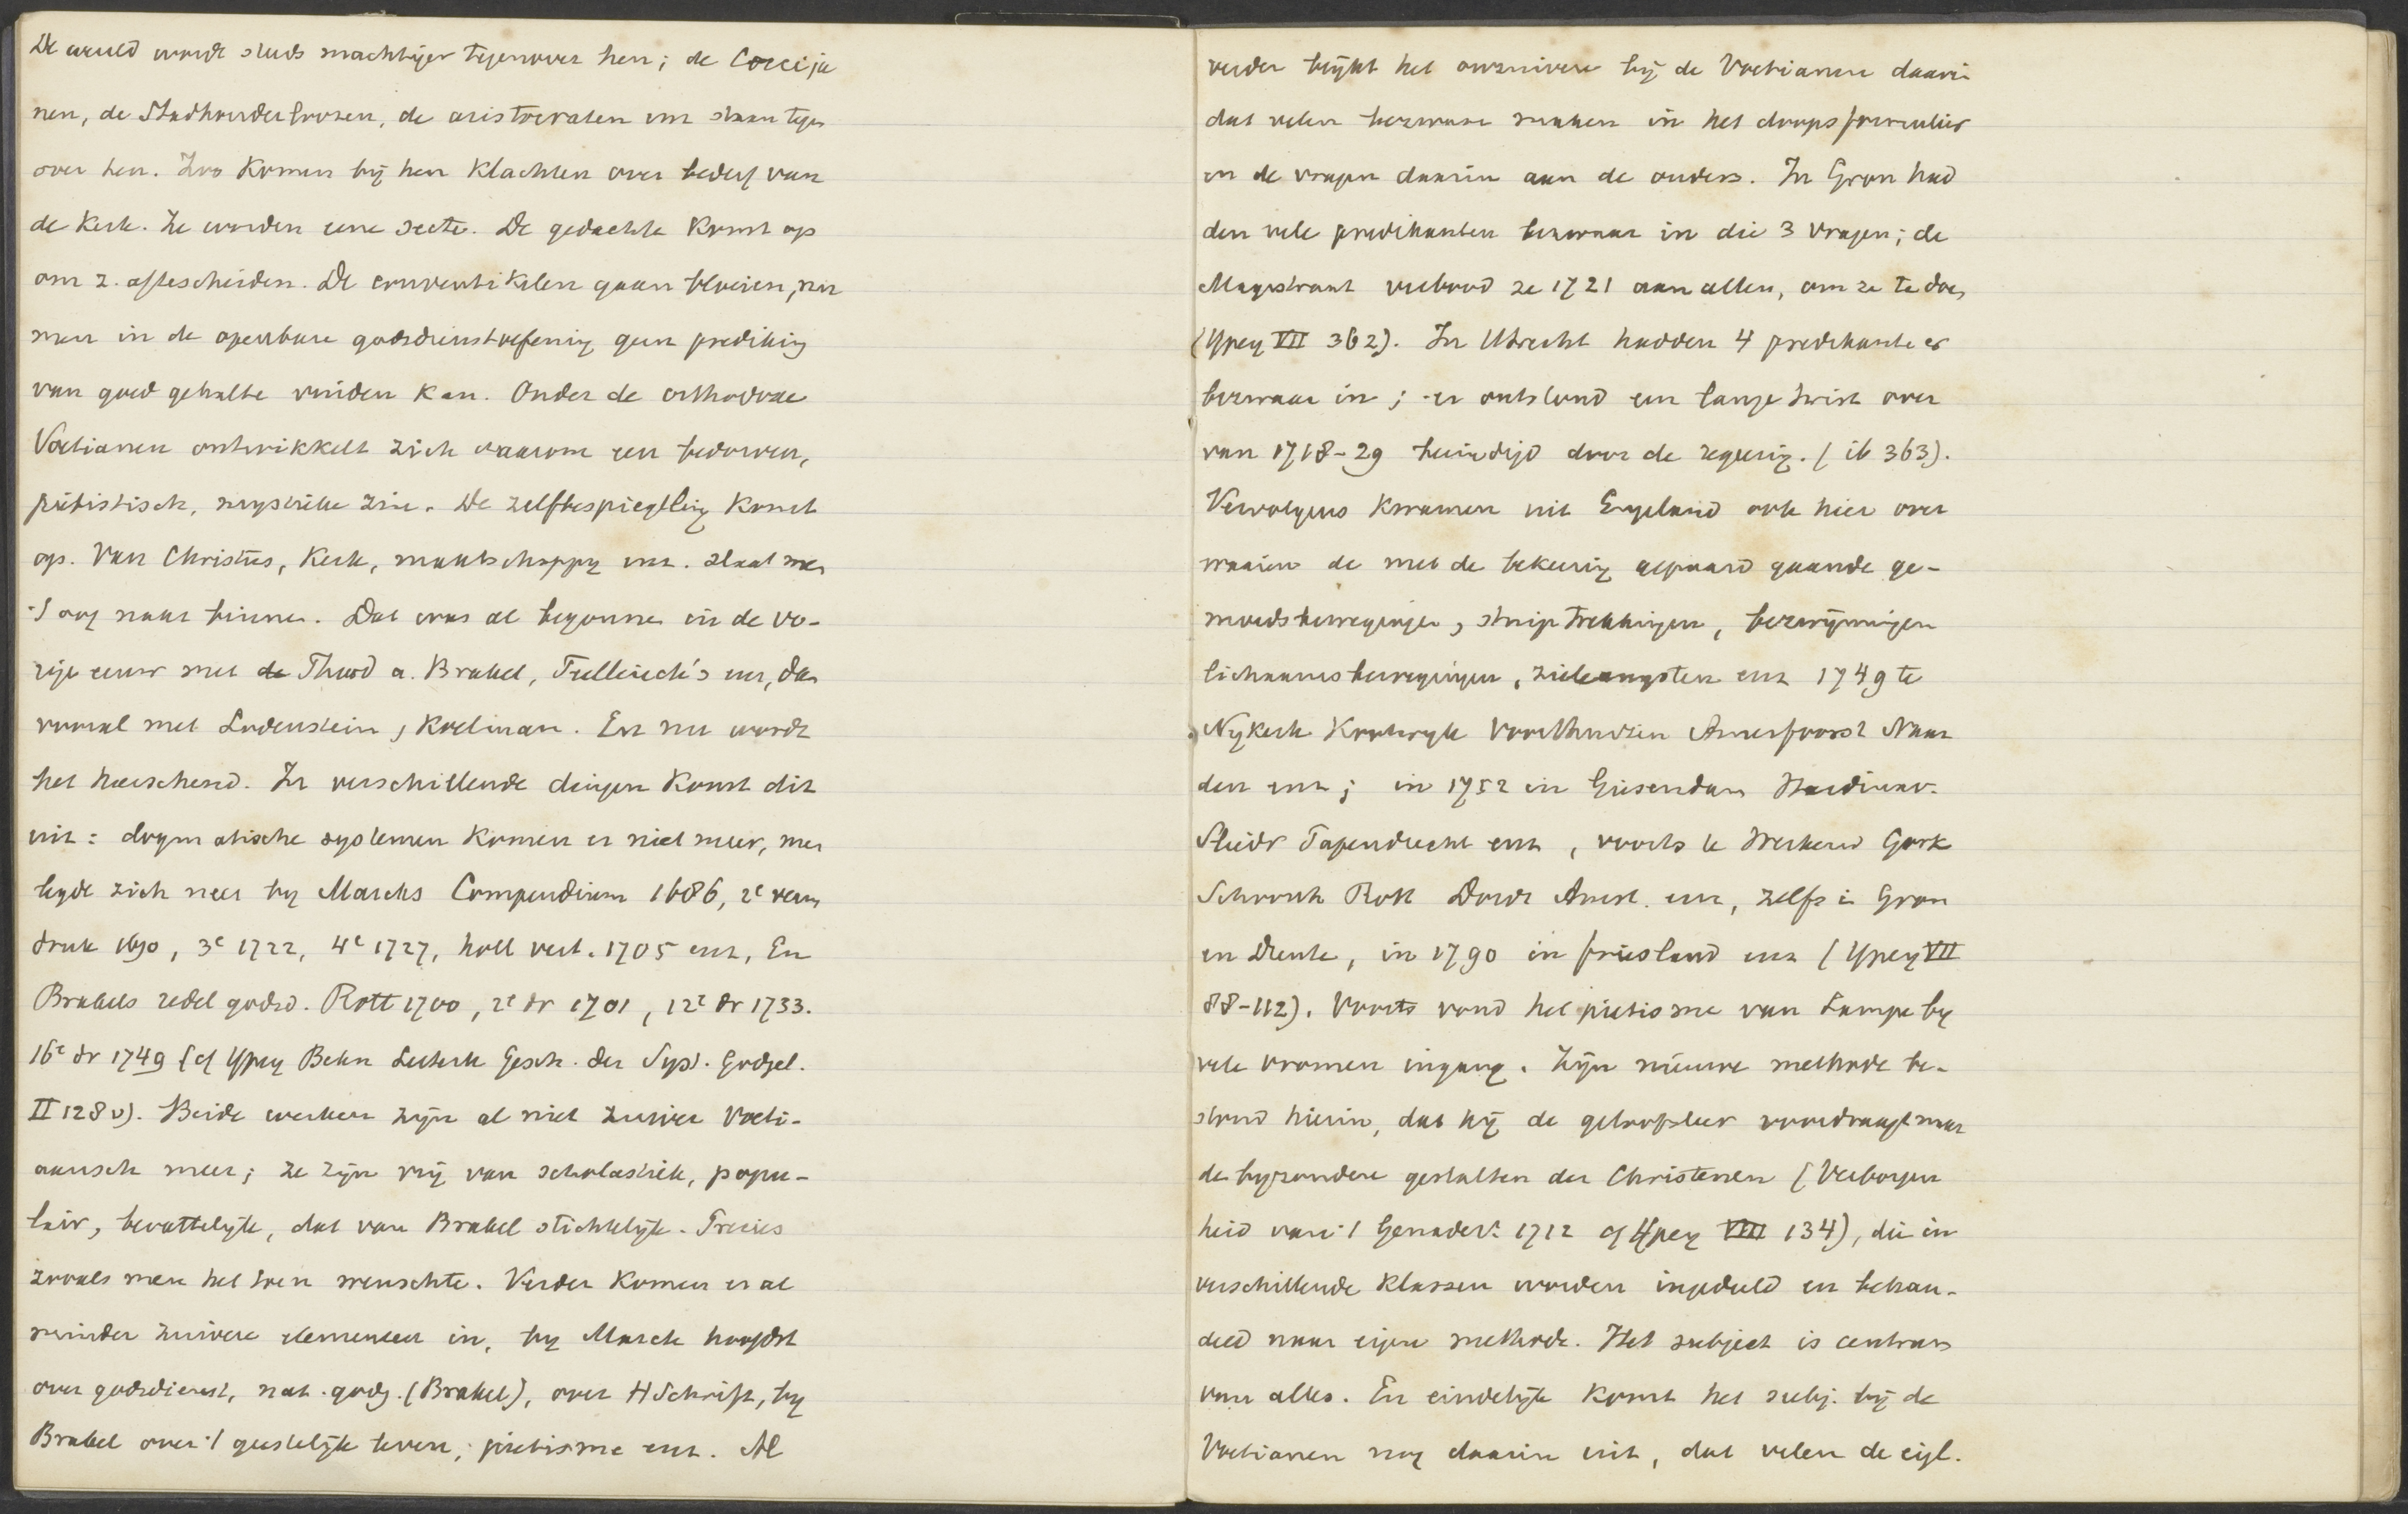 De wereld wordt steeds machtiger tegenover hen; de Cocceja
nen, de Stadhouderloozen, de aristocraten enz staan tegen
over hen. Zoo komen bij hen klachten over bederf van
de Kerk. Ze worden eene secte. De gedachte komt op
om z. aftescheiden. De conventikelen gaan bloeien, nu
men in de openbare godsdienstoefening geen prediking
van goed gehalte vinden kan. Onder de orthodoxe
Voetianen ontwikkelt zich daarom een bedorven,
piëtistisch, mystieke zin. De zelfbespiegeling komt
op. Van Christus, Kerk, maatschappy enz. slaat men
't oog naar binnen. Dat was al begonnen in de vo-
rige eeuw met de Theod a. Brakel, Tellinck's enz, dan
vooral met Lodenstein, Koelman. En nu wordt
het heerschend. In verschillende dingen komt dit
uit: dogmatische systemen komen er niet meer, men
legde zich neer by Marcks Compendium 1686, 2e verm
druk 1690, 3e 1722, 4e 1727, holl vert. 1705 enz, En
Brakels redel godsd. Rott 1700, 2e dr 1701, 12e dr 1733.
16e dr 1749 (cf Ypey Bekn Letterk Gesch. der Syst. Godgel.
II 128 v). Beide werken zijn al niet zuiver Voeti-
aansch meer; ze zijn vrij van scholastiek, popu-
lair, bevattelijk, dat van Brakel stichtelijk. Precies
zooals men het toen wenschte. Verder komen er al
minder zuivere elementen in, by Marck hoofdst
over godsdienst, nat. godg. (Brakel), over H Schrift, by
Brakel over 't geestelijk leven, pietisme enz. Al
verder blijkt het onzuivere bij de Voetianen daarin
dat velen bezwaar maken in het doopsformulier
en de vragen daarin aan de ouders. In Gron had
den vele predikanten bezwaar in die 3 vragen; de
Magistraat verbood ze 1721 aan allen, om ze te doen
(Ypey VII 362). In Utrecht hadden 4 predikanten er
bezwaar in; er ontstond een lange twist over
van 1718-29 beëindigd door de regeering. (ib 363).
Vervolgens kwamen uit Engeland ook hier over
waaien de met de bekeering gepaard gaande ge-
moedsbewegingen, stuiptrekkingen, bezwijmingen
lichaamsbewegingen, zieleangsten enz 1749 te
Nykerk Kootwyk Voorthuizen Amersfoort Naar
den enz; in 1752 in Giesendam Hardinxv.
Sliedr Papendrecht enz, voorts te Werkend Gork
Schoonh Rott Dordr Amst. enz, zelfs in Gron
en Drente, in 1790 in friesland enz (Ypey VII
88-112). Voorts vond het pietisme van Lampe by
vele vromen ingang. Zijn nieuwe methode be-
stond hierin, dat hij de geloofsleer voordraagt naar
de byzondere gestalten der Christenen (Verborgen
heid van 't Genadev. 1712 cf Ypey VIII 134), die in
verschillende klassen worden ingedeeld en behan-
deld naar eigen methode. Het subject is centrum
van alles. En eindelijk komt het subj. bij de
Voetianen nog daarin uit, dat velen de eigl.